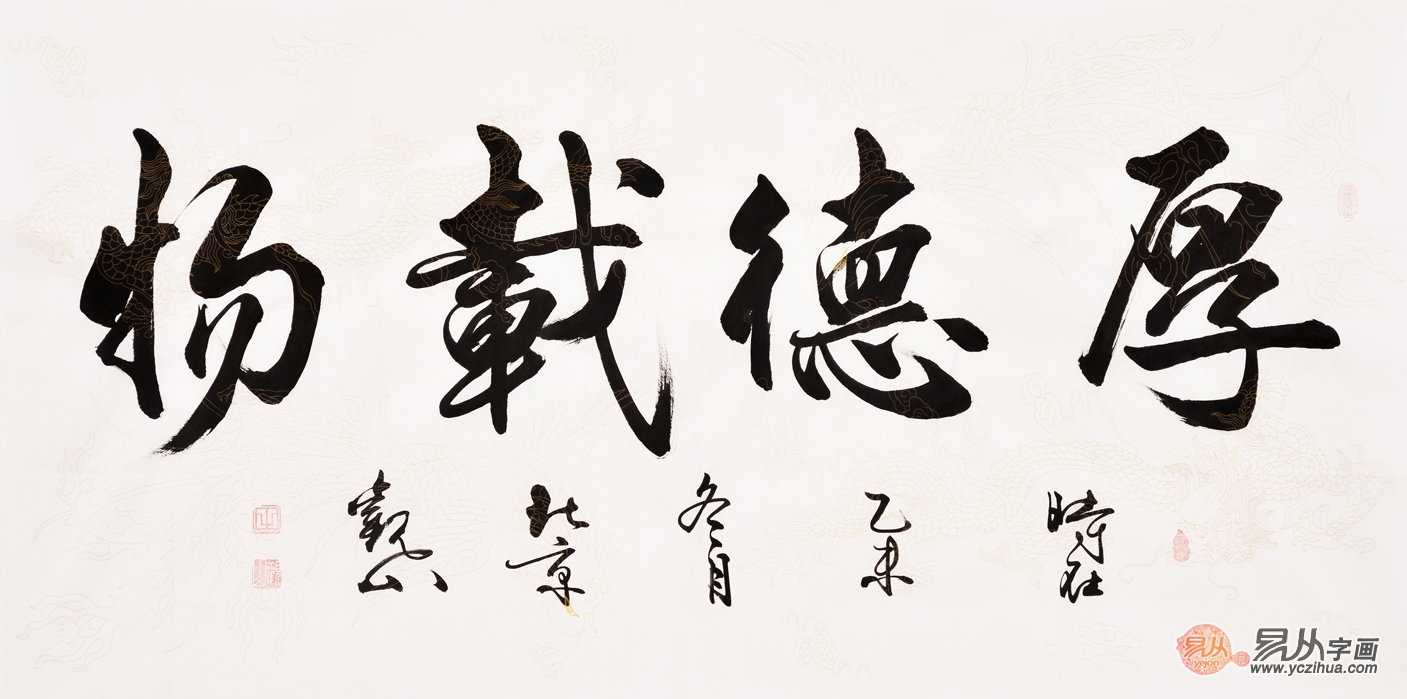 厚德載物
時在
乙未
冬月
北京
觀山
易从
yejon
易从字画
www.yczihua.com